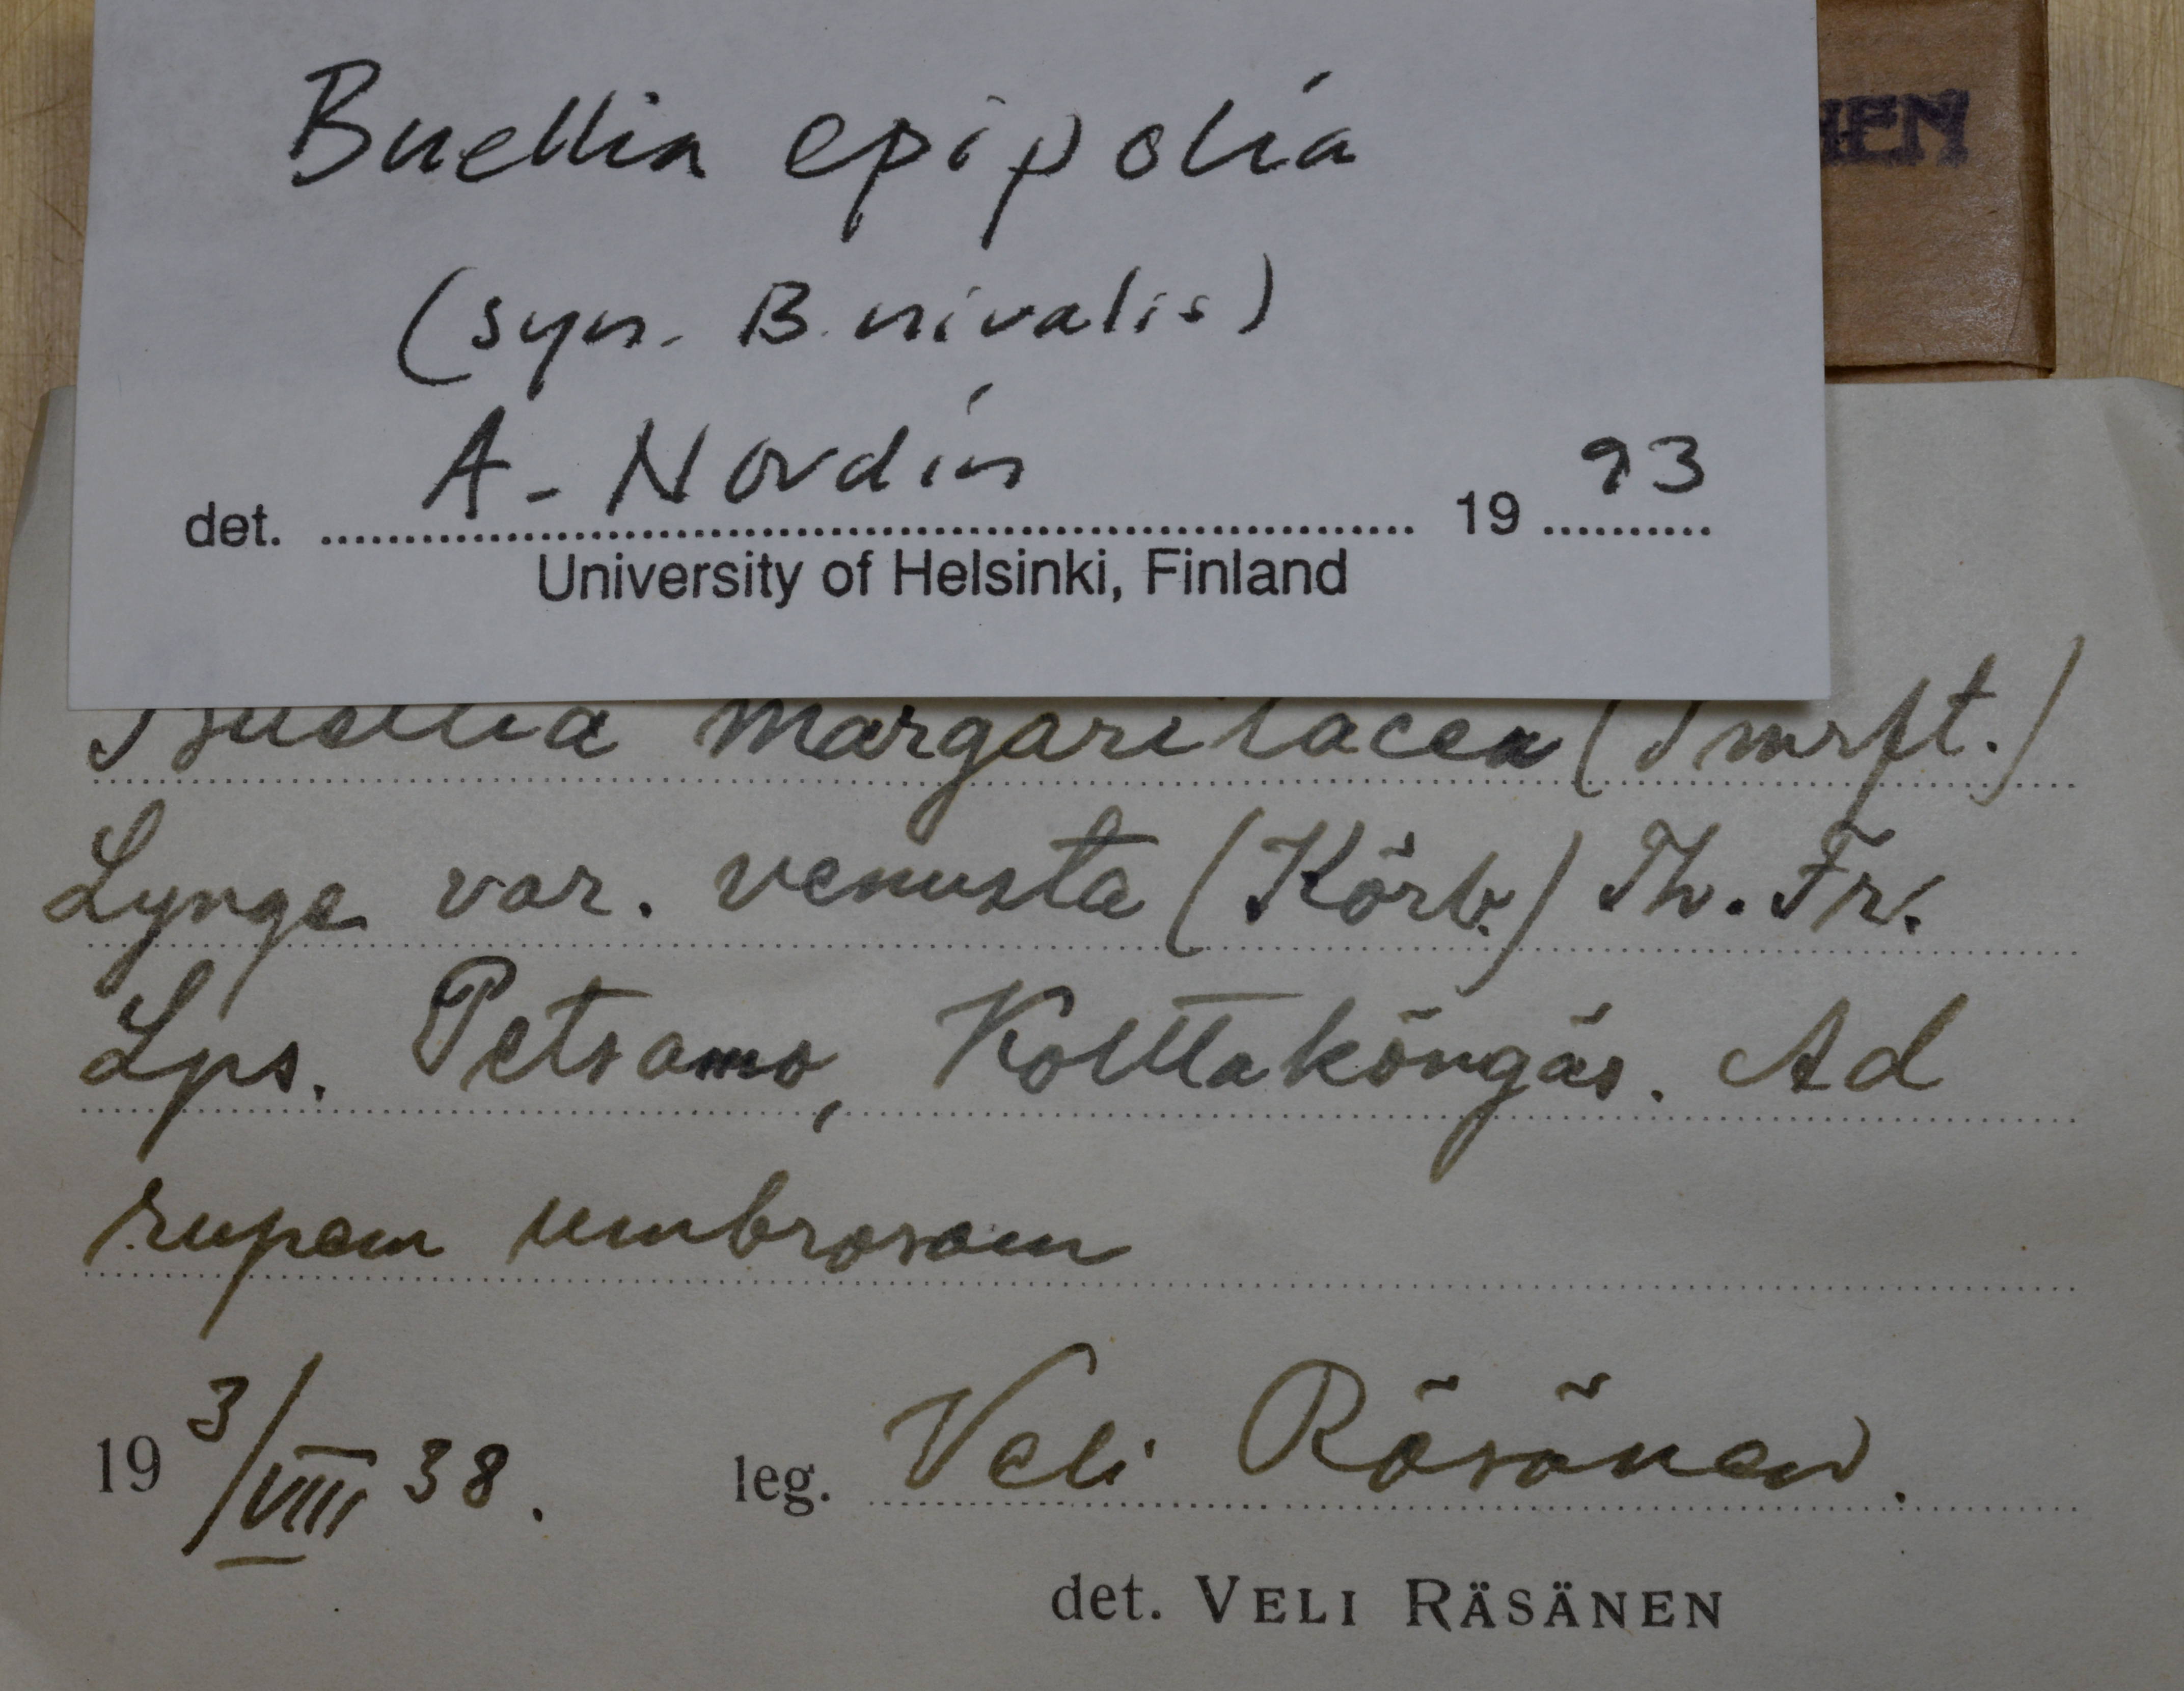 Buellia epipolia
(syn. B. nivalis)
A. Nordin
det. 19 93
University of Helsinki, Finland
Buellia margaritacea (Smrft.)
Lynge var. venusta (Körb.) Th. Fr.
Lps. Petsamo, Kolttaköngäs. Ad
rupem umbrosam
19 3/VIII 38. leg. Veli Räsänen.
det. VELI RÄSÄNEN